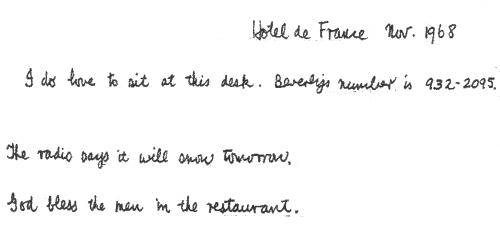 Hotel de France Nov. 1968
I do love to sit at this desk. Beverly's number is 932-2095.
The radio says it will snow tomorrow.
God bless the men in the restaurant.